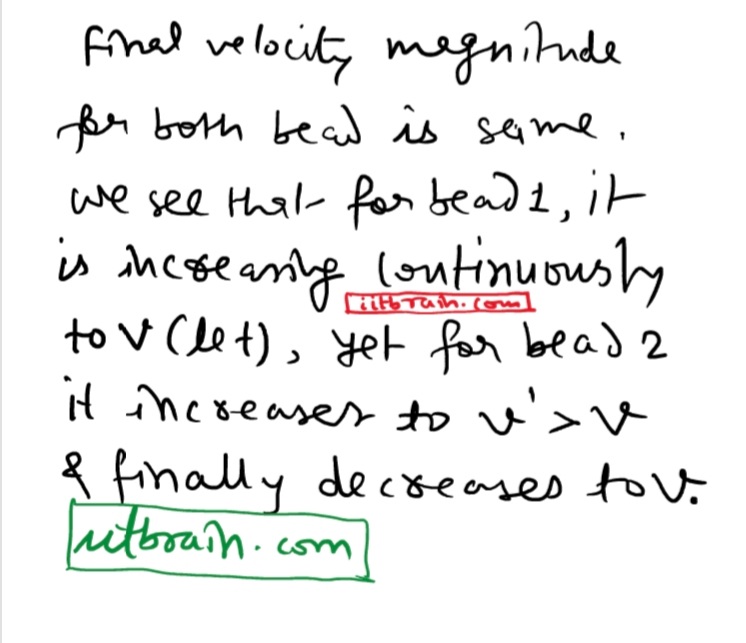 final velocity magnitude
for both bead is same.
we see that for bead 1, it
is increasing continuously
iitbrain.com
to v (let), yet for bead 2
it increases to v' > v
& finally decreases to v.
iitbrain.com